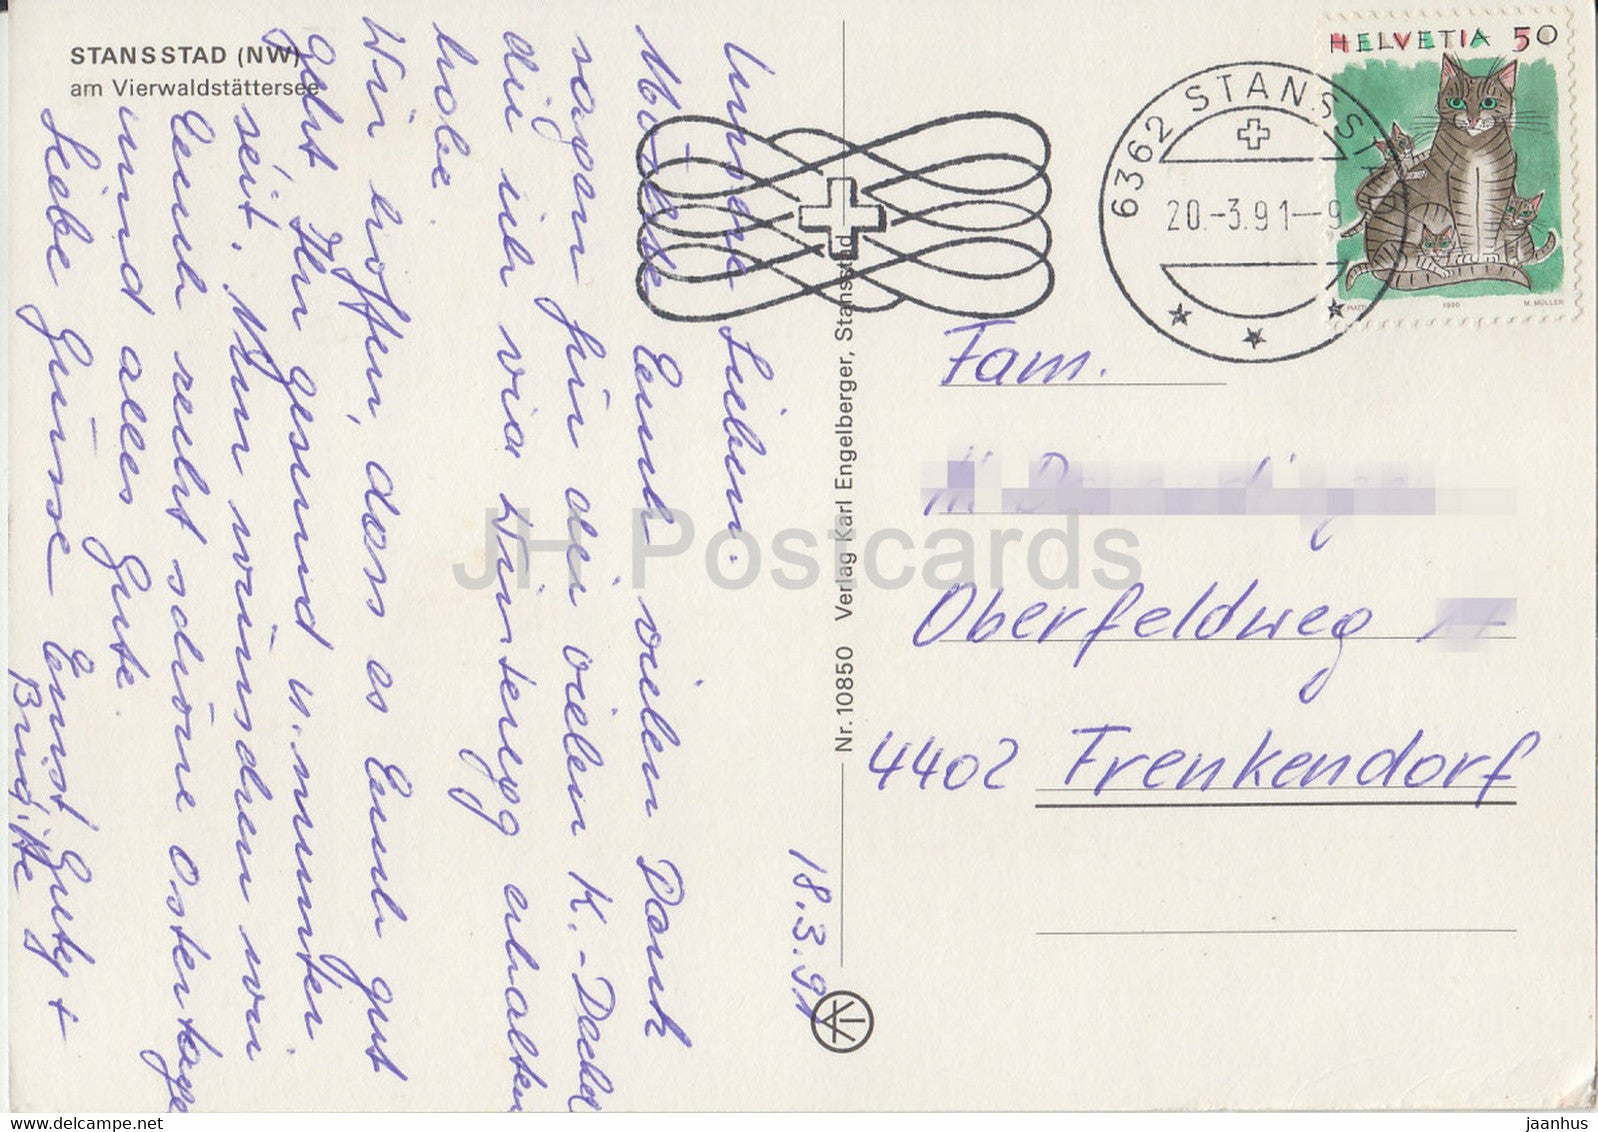 STANSSTAD (NW)
am Vierwaldstättersee
HELVETIA 50
1990
M. MÜLLER
6362 STANSSTAD
20.-3.91--9
18.3.91
Unsere Lieben.
Möchte Euch vielen Dank
sagen für die vielen K.-Deckel
die ich via Winteregg erhalten
habe.
Wir hoffen, dass es Euch gut
geht Ihr gesund u. munter
seit. Nun wünschen wir
Euch recht schöne Ostertage
und alles Gute.
Liebe Grüsse Ernst Gutzy +
Brigitte
Nr. 10850 Verlag Karl Engelberger, Stansstad
Fam.
Oberfeldweg
4402 Frenkendorf
JH Postcards
delcampe.net
jaanhus